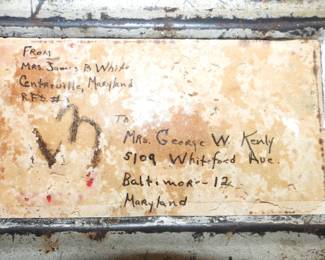 FROM
MRS. James B White
Centreville, Maryland
R.F.D. #
To
MRS. George W. Kenly
5109 Whiteford Ave.
Baltimor-- 12
Maryland